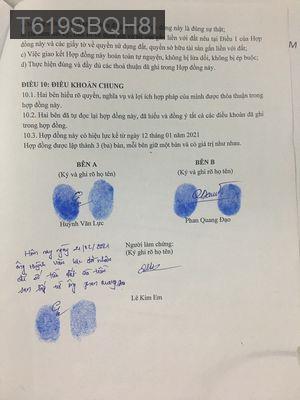 T619SBQH8I
này là đúng sự thật;
gắn liền với đất nêu tại Điều 1 của Hợp
đồng này và các giấy tờ về quyền sử dụng đất, quyền sở hữu tài sản gắn liền với đất;
c) Việc giao kết Hợp đồng này hoàn toàn tự nguyện, không bị lừa dối, không bị ép buộc;
d) Thực hiện đúng và đầy đủ các thoả thuận đã ghi trong Hợp đồng này.
M
ĐIỀU 10: ĐIỀU KHOẢN CHUNG
10.1. Hai bên hiểu rõ quyền, nghĩa vụ và lợi ích hợp pháp của mình được thỏa thuận trong
hợp đồng này.
10.2. Hai bên đã tự đọc lại hợp đồng này, đã hiểu và đồng ý tất cả các điều khoản đã ghi
trong hợp đồng.
10.3. Hợp đồng này có hiệu lực kể từ ngày 12 tháng 01 năm 2021
Hợp đồng được lập thành 3 (ba) bản, mỗi bên giữ một bản và có giá trị như nhau.
BÊN A
(Ký và ghi rõ họ tên)
BÊN B
(Ký và ghi rõ họ tên)
Huỳnh Văn Lực
Phan Quang Đạo
Hôm nay ngày
ông Huỳnh Văn Lực đã nhận
đủ số tiền
Người làm chứng:
(Ký ghi rõ họ tên)
Lê Kim Em